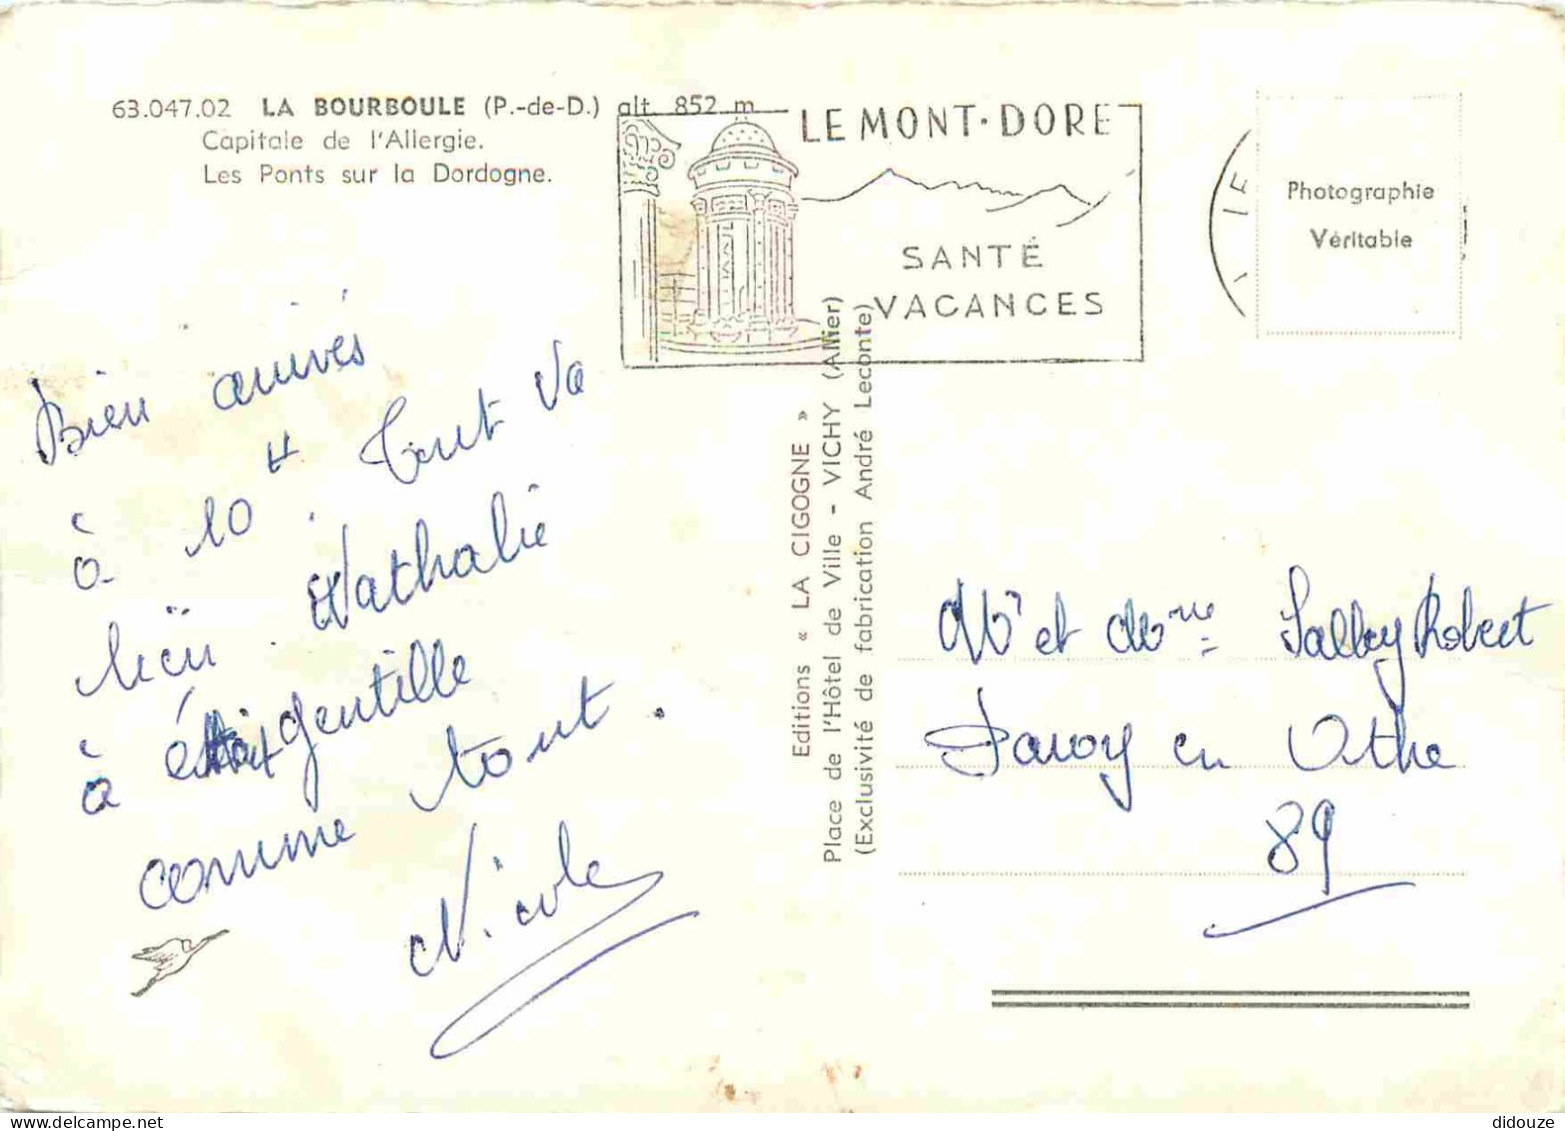 63.047.02 LA BOURBOULE (P.-de-D.) alt. 852 m
Capitale de l'Allergie.
Les Ponts sur la Dordogne.
LE MONT-DORE
SANTÉ
VACANCES
Photographie
Véritable
Bien arrivés
à 10 H Tout va
bien Nathalie
à été gentille
comme tout.
Nicole
Editions « LA CIGOGNE »
Place de l'Hôtel de Ville - VICHY (Allier)
(Exclusivité de fabrication André Leconte)
Mr et Mme Salley Robert
Paroy en Othe
89
didouze